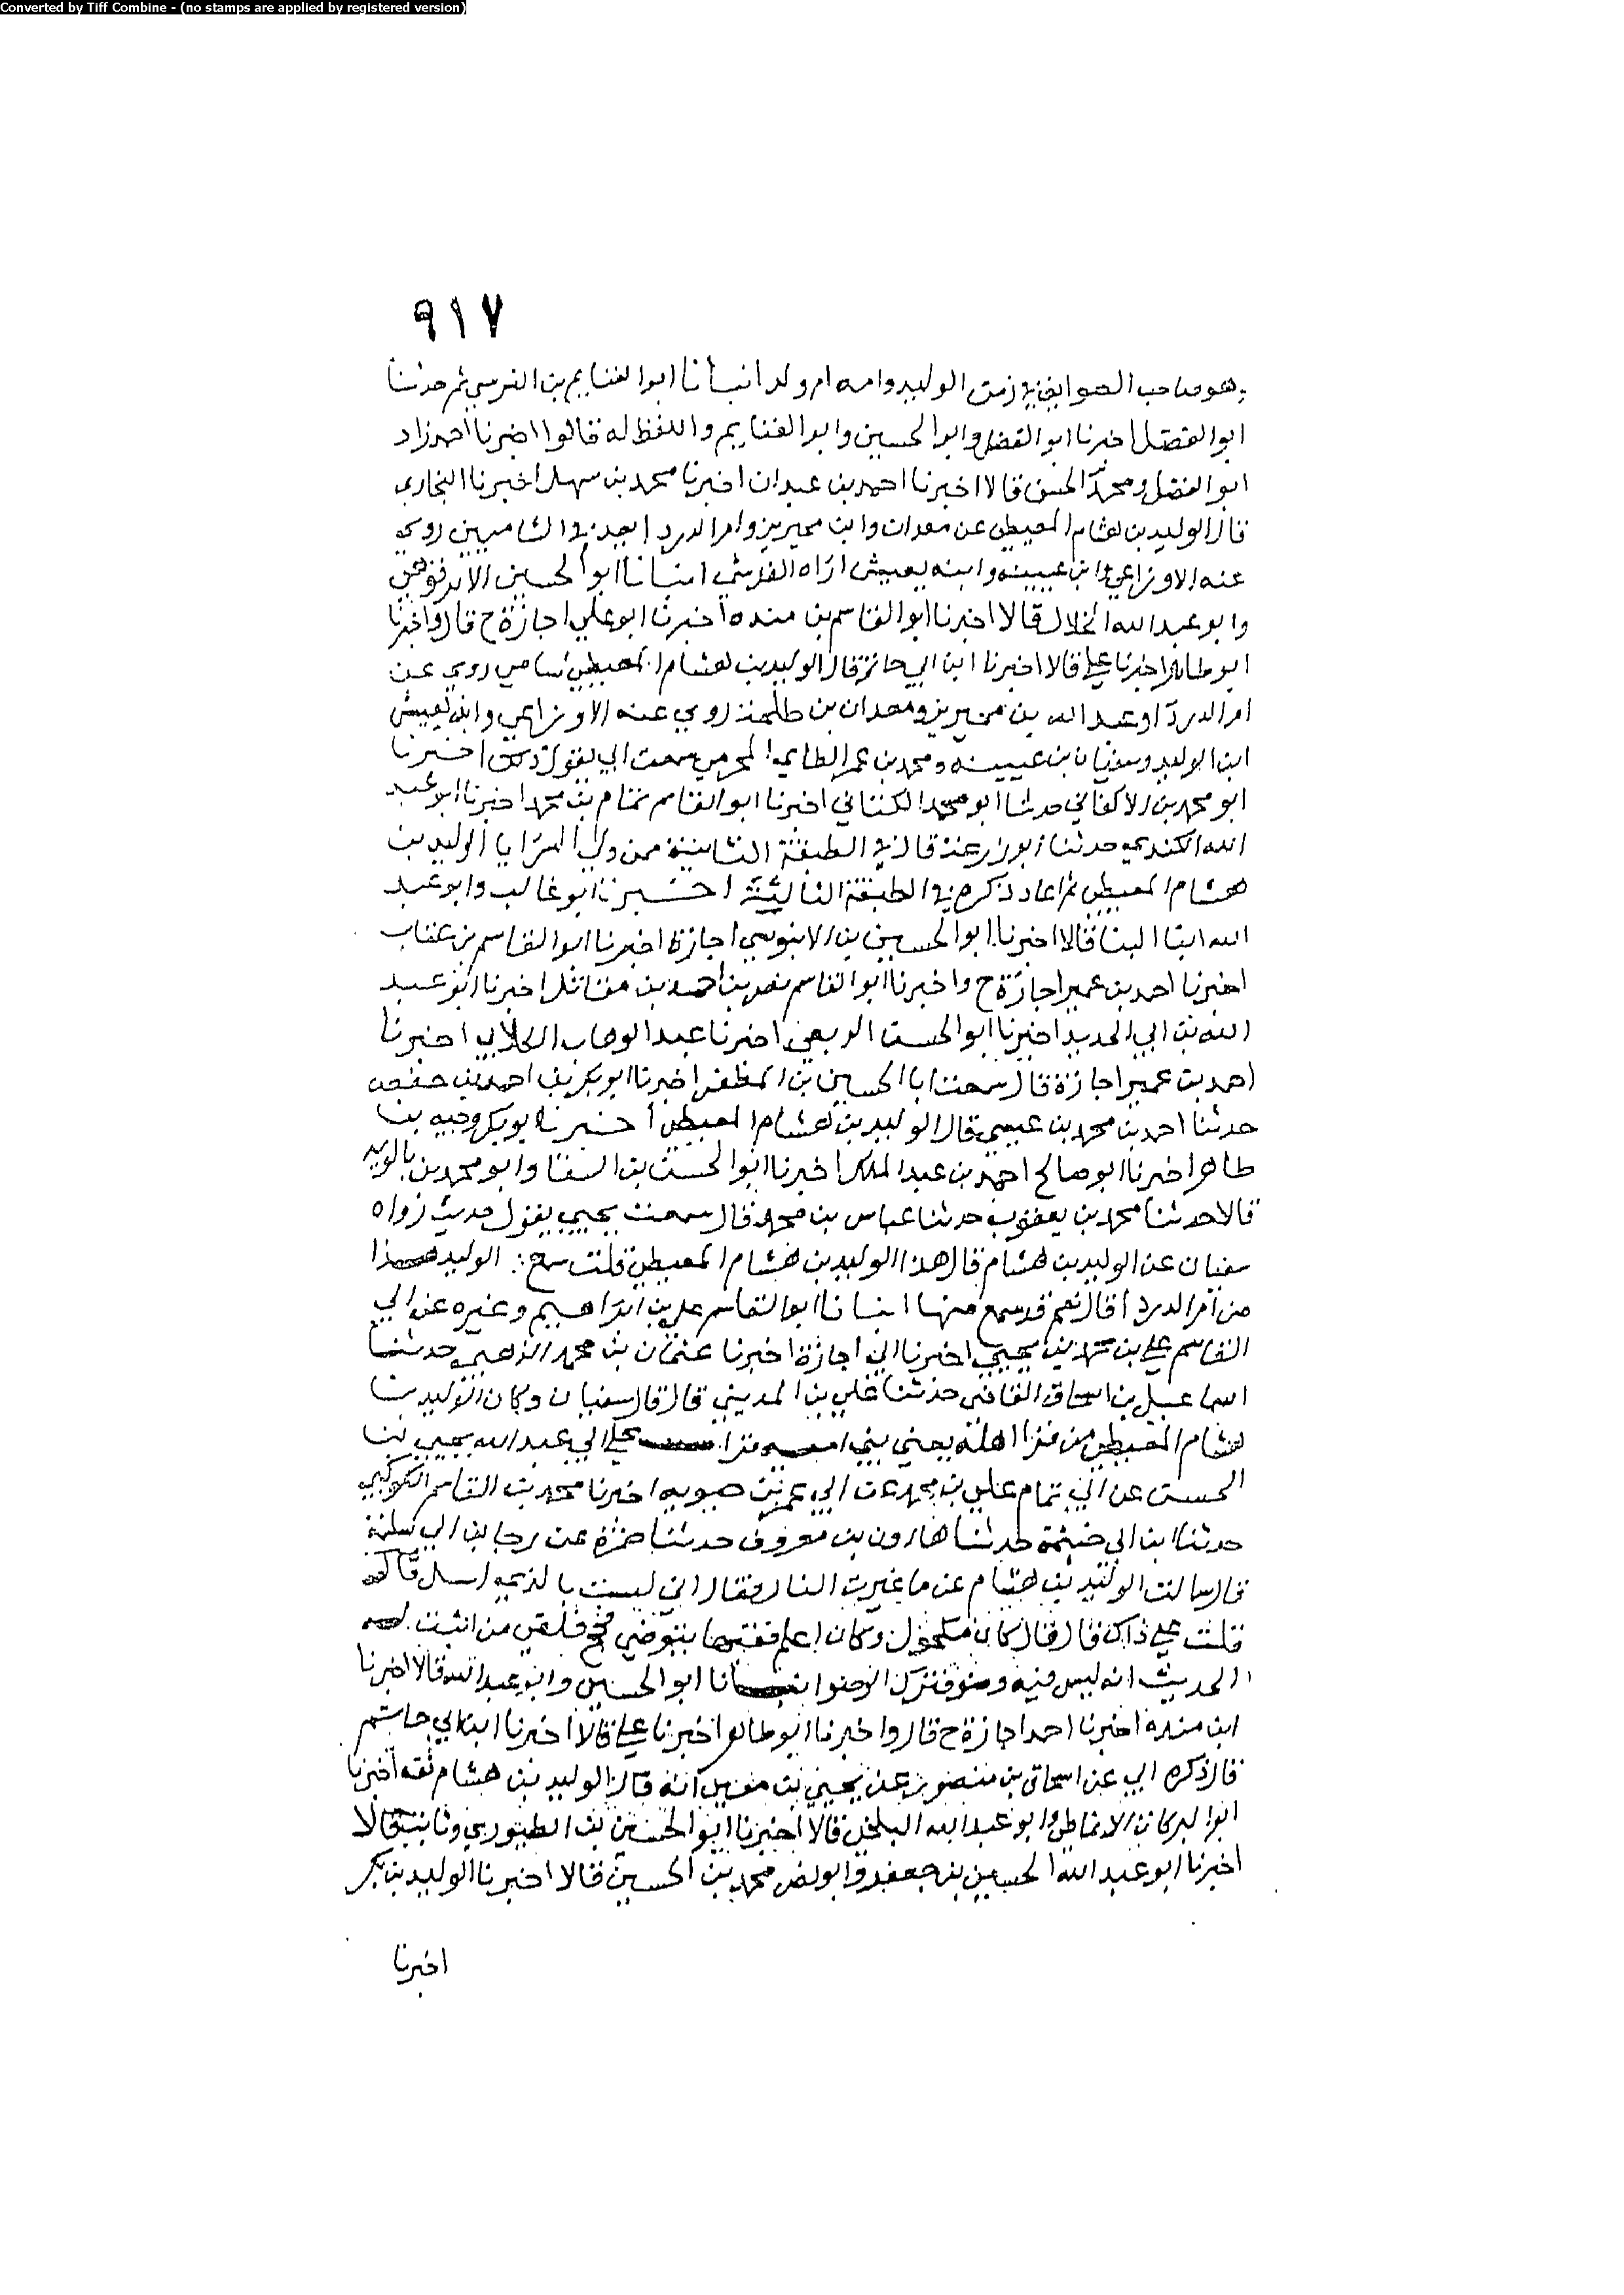 Converted by Tiff Combine - (no stamps are applied by registered version)
٩١٧
هو صاحب الصوايف في زمن الوليد وامه ام ولد انبأنا ابوا لغنايم بن النرسي ثم حدثنا
ابو الفضل اخبرنا ابو الفضل وابو الحسين وابو الغنايم واللفظ له قالوا اخبرنا احمد زاد
ابو الفضل ومحمد بن الحسن قالا اخبرنا احمد بن عبدان اخبرنا محمد بن سهل اخبرنا البخاري
قال الوليد بن هشام المعيطي عن معدان وابن محيريز وام الدرداء يعد في الشاميين روى
عنه الاوزاعي وابن عيينه وابنه يعيش اراه القرشي انبانا ابو الحسين الابرقوهي
وابو عبد الله الخلال قالا اخبرنا ابو القاسم بن منده اخبرنا ابو علي اجازة ح قال واخبرنا
ابو طاهر اخبرنا علي قالا اخبرنا ابن ابي حاتم قال الوليد بن هشام المعيطي شامي روى عن
ام الدردآ وعبد الله بن محيريز ومعدان بن طلحة روى عنه الاوزاعي وابنه يعيش
ابن الوليد وسفيان بن عيينه ومحمد بن عمر الطايي المحرمي سمعت ابي يقول ذلك اخبرنا
ابو محمد بن الاكفاني حدثنا ابو محمد الكتاني اخبرنا ابو القاسم تمام بن محمد اخبرنا ابو عبد
الله الكندي حدثنا ابو زرعة قال في الطبقة الثانية ممن ولي السرايا الوليد بن
هشام المعيطي ثم اعاد ذكره في الطبقة الثالثة اخبرنا ابو غالب وابو عبد
الله ابنا البنا قالا اخبرنا ابو الحسين بن الابنوسي اجازة اخبرنا ابو القاسم بن عتاب
اخبرنا احمد بن عمير اجازة ح واخبرنا ابو القاسم نصر بن احمد بن مقاتل اخبرنا ابو عبد
الله بن ابي الحديد اخبرنا ابو الحسن الربعي اخبرنا عبد الوهاب الكلابي اخبرنا
احمد بن عمير اجازة قال سمعت ابا الحسين بن المظفر اخبرنا ابو بكر بن احمد بن حفص
حدثنا احمد بن محمد بن عيسى قال الوليد بن هشام المعيطي اخبرنا ابو بكر وجيه بن
طاهر اخبرنا ابو صالح احمد بن عبد الملك اخبرنا ابو الحسن بن السقا وابو محمد بن بالويه
قالا حدثنا محمد بن يعقوب حدثنا عباس بن محمد قال سمعت يحيى يقول حديث رواه
سفيان عن الوليد بن هشام قال هذا الوليد بن هشام المعيطي قلت سمع الوليد هذا
من ام الدرداء قال نعم قد سمع منها انبانا ابو القاسم علي بن ابراهيم وغيره عن ابي
القاسم علي بن محمد بن يحيى اخبرنا ابي اجازة اخبرنا عثمان بن محمد الذهبي حدثنا
اسماعيل بن اسحاق القاضي حدثنا علي بن المديني قال قال سفيان وكان الوليد بن
هشام المعيطي من قرا اهله يعني بني اميه قرا علي ابي عبد الله يحيى بن
الحسن عن ابي تمام علي بن محمد عن ابي عمر بن حيويه اخبرنا محمد بن القاسم الكوكبي
حدثنا ابن ابي خيثمة حدثنا هارون بن معروف حدثنا ضمرة عن رجا بن ابي سلمة
قال سالت الوليد بن هشام عن ما غيرت النار فقال اني لست بالذي اسال قال
قلت علي ذاك قال فقال كان مكحول وكان اعلم يتوضي فلقي من اثبت له
الحديث انه ليس فيه وضو فترك الوضوا انبانا ابو الحسين وابو عبد الله قالا اخبرنا
ابن منده اخبرنا احمد اجازة ح قال واخبرنا ابو طاهر اخبرنا علي قالا اخبرنا ابن ابي حاتم
قال ذكره ابي عن اسحاق بن منصور عن يحيى بن معين انه قال الوليد بن هشام ثقه اخبرنا
ابو البركات الانماطي وابو عبد الله البلخي قالا اخبرنا ابو الحسين بن الطيوري وثابت قالا
اخبرنا ابو عبد الله الحسين بن جعفر وابو نصر محمد بن الحسين قالا اخبرنا الوليد بن بكر
اخبرنا